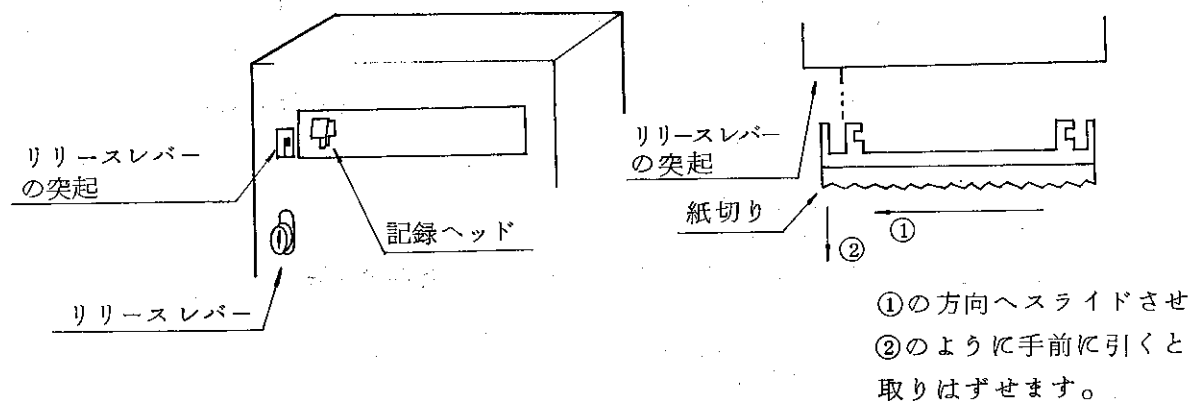 リリースレバー
の突起
記録ヘッド
リリースレバー
リリースレバー
の突起
紙切り
①
②
①の方向へスライドさせ
②のように手前に引くと
取りはずせます。